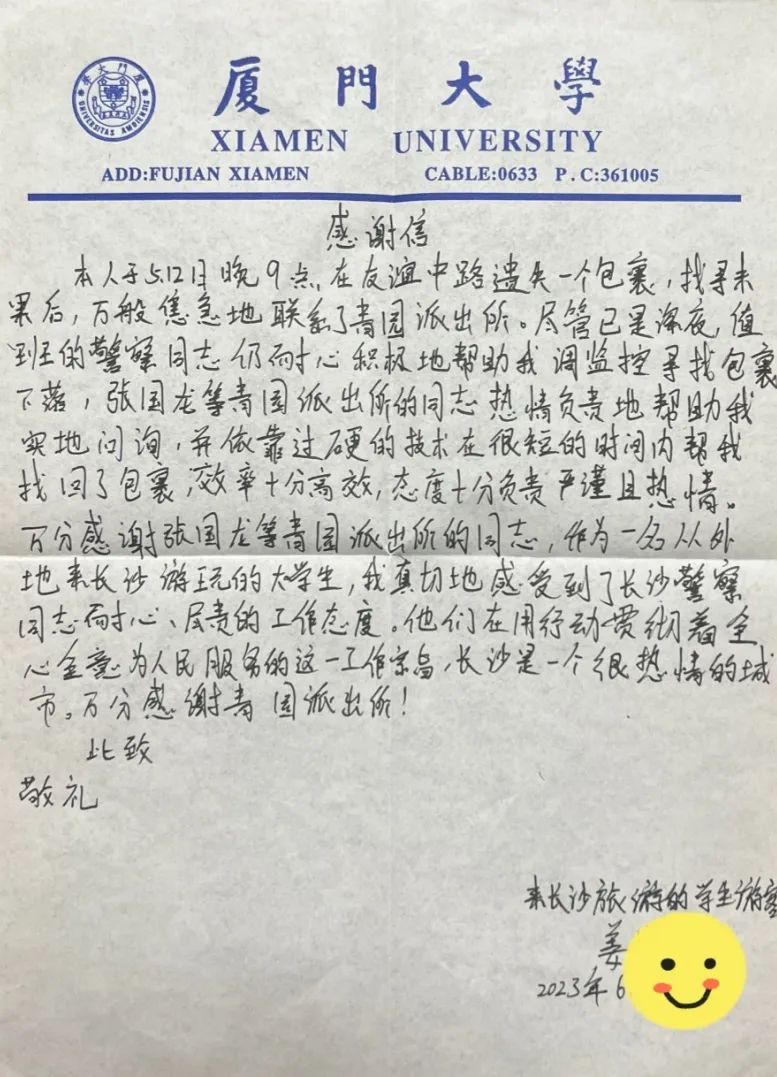 廈門大學
XIAMEN UNIVERSITY
ADD:FUJIAN XIAMEN CABLE:0633 P.C:361005
廈門大學
UNIVERSITAS AMOIENSIS
感谢信
本人于5.12日晚9点,在友谊中路遗失一个包裹,找寻未
果后,万般焦急地联系了青园派出所。尽管已是深夜,值
班的警察同志仍耐心积极地帮助我调监控寻找包裹
下落,张国龙等青园派出所的同志热情负责地帮助我
实地问询,并依靠过硬的技术在很短的时间内帮我
找回了包裹,效率十分高效,态度十分负责严谨且热情。
万分感谢张国龙等青园派出所的同志,作为一名从外
地来长沙游玩的大学生,我真切地感受到了长沙警察
同志耐心、尽责的工作态度。他们在用行动贯彻着全
心全意为人民服务的这一工作宗旨,长沙是一个很热情的城
市。万分感谢青园派出所!
此致
敬礼
来长沙旅游的学生游客
姜
2023年6